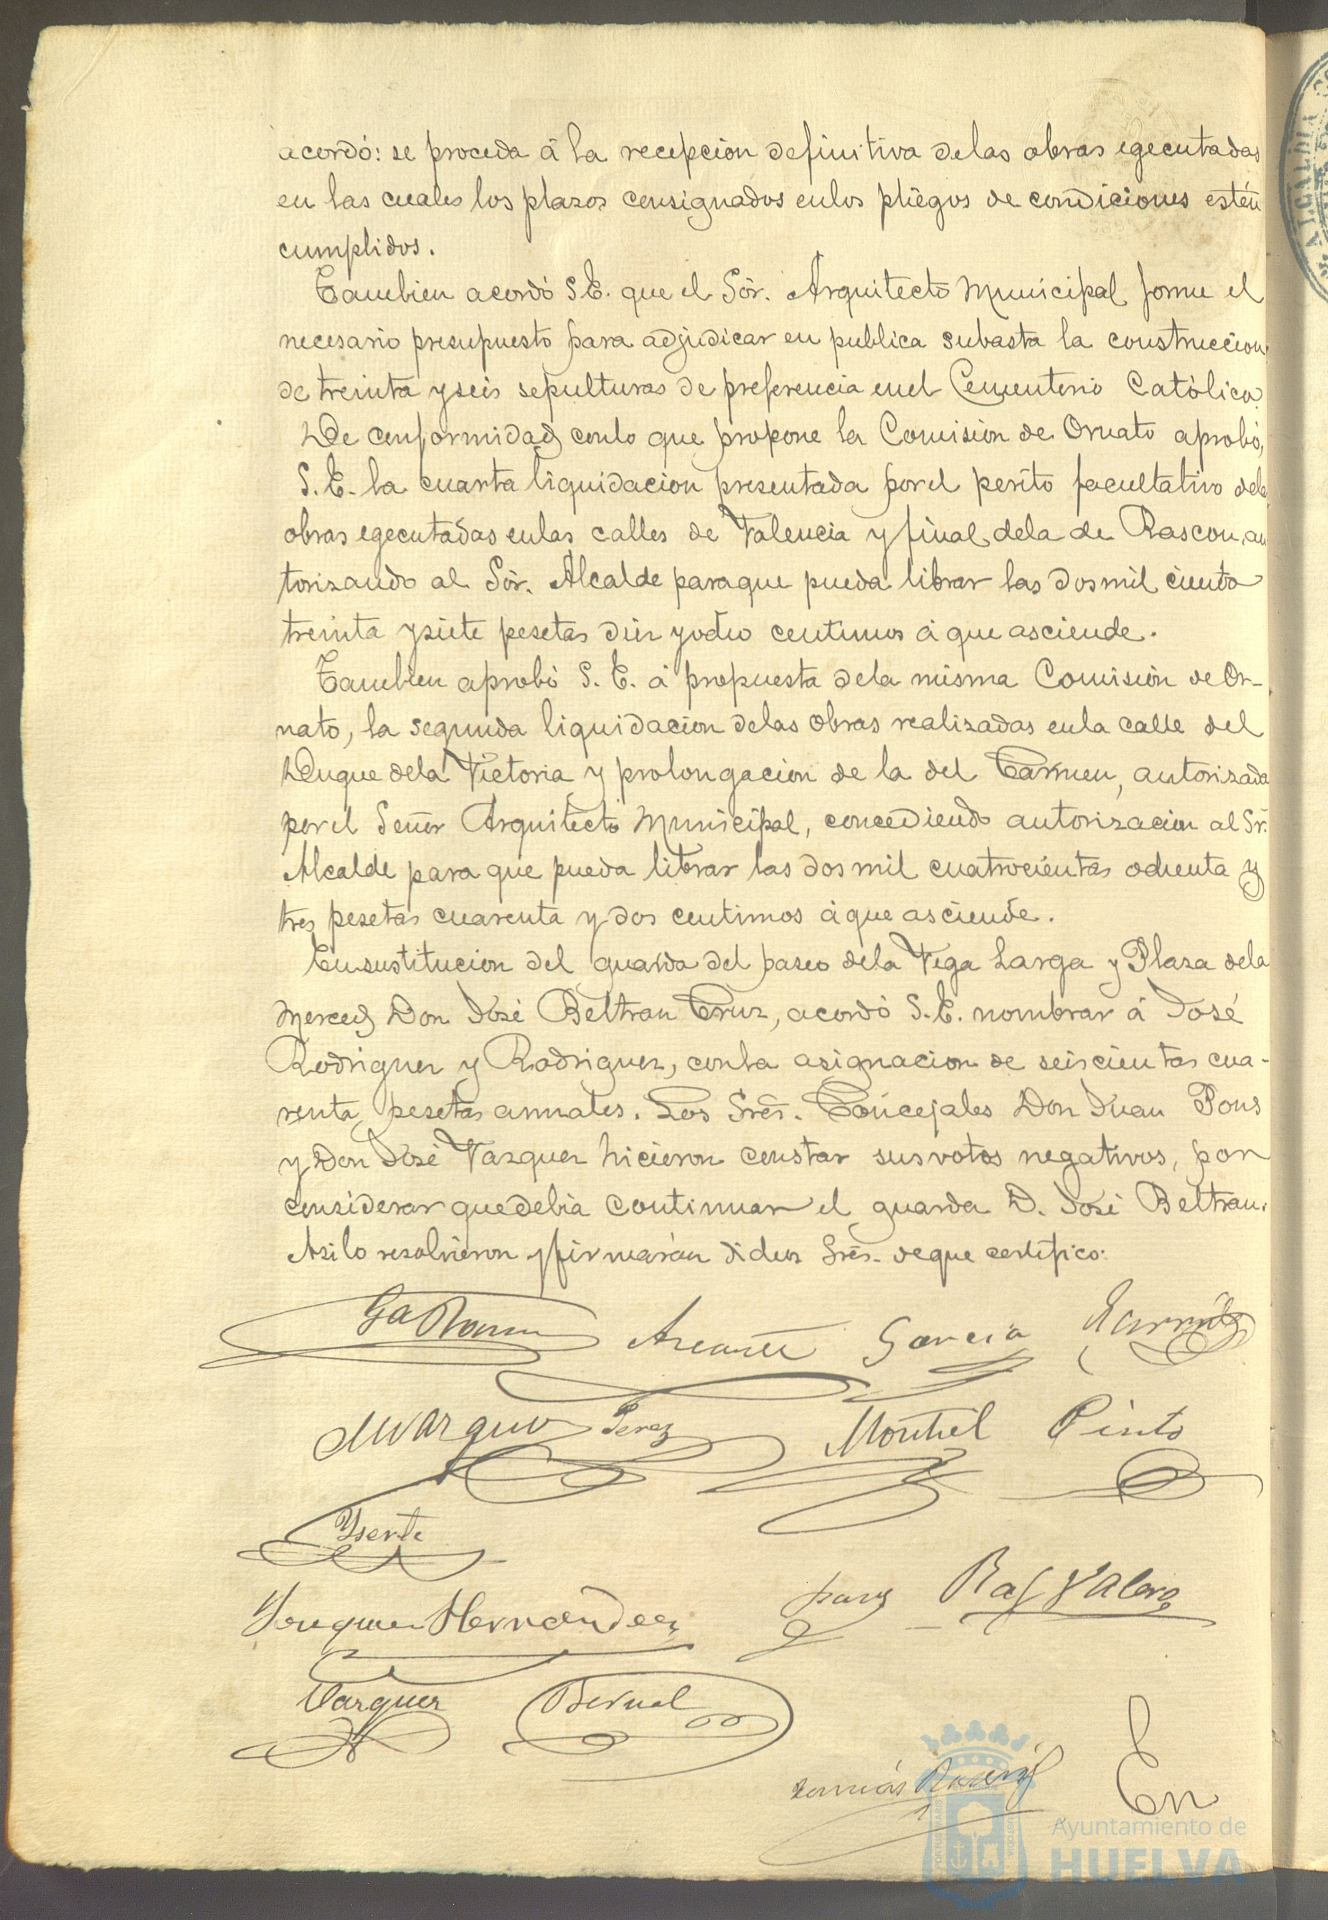 acordó: se proceda á la recepcion definitiva delas obras egecutadas
en las cuales los plazos consignados enlos pliegos de condiciones estén
cumplidos.
Tambien acordó S.E. que el Sór. Arquitecto Municipal forme el
necesario presupuesto para adjudicar en publica subasta la construccion
de treinta y seis sepulturas de preferencia enel Cementerio Católico.
De conformidad conlo que propone la Comision de Ornato aprobó,
S.E. la cuarta liquidacion presentada porel perito facultativo dela
obras egecutadas enlas calles de Valencia y final dela de Rascon, au
torizando al Sór. Alcalde paraque pueda librar las dos mil ciento
treinta y siete pesetas diez yocho centimos á que asciende.
Tambien aprobó S.E. á propuesta dela misma Comisión de Or-
nato, la segunda liquidacion delas obras realizadas enla calle del
Duque dela Victoria y prolongacion de la del Carmen, autorizada
porel Señor Arquitecto Municipal, concediendo autorizacion al Sr.
Alcalde para que pueda librar las dos mil cuatrocientas ochenta y
tres pesetas cuarenta y dos centimos á que asciende.
Ensustitucion del guarda del paseo dela Vega Larga y Plaza dela
Merced Don José Beltran Cruz, acordó S.E. nombrar á José
Rodriguez y Rodriguez, conla asignacion de seiscientas cua-
renta pesetas anuales. Los Srēs. Concejales Don Juan Pons
y Don José Vazquez hicieron constar sus votos negativos, por
considerar quedebia continuar el guarda D. José Beltran.
Asilo resolvieron y firmarán dichos Srēs. deque certifico:
Garcia
Perez Montiel Pinto
Yserte
Joaquin Hernandez Raf Valero
Vazquez Bernal
Tomás
En
Ayuntamiento de
HUELVA
ALCALDIA